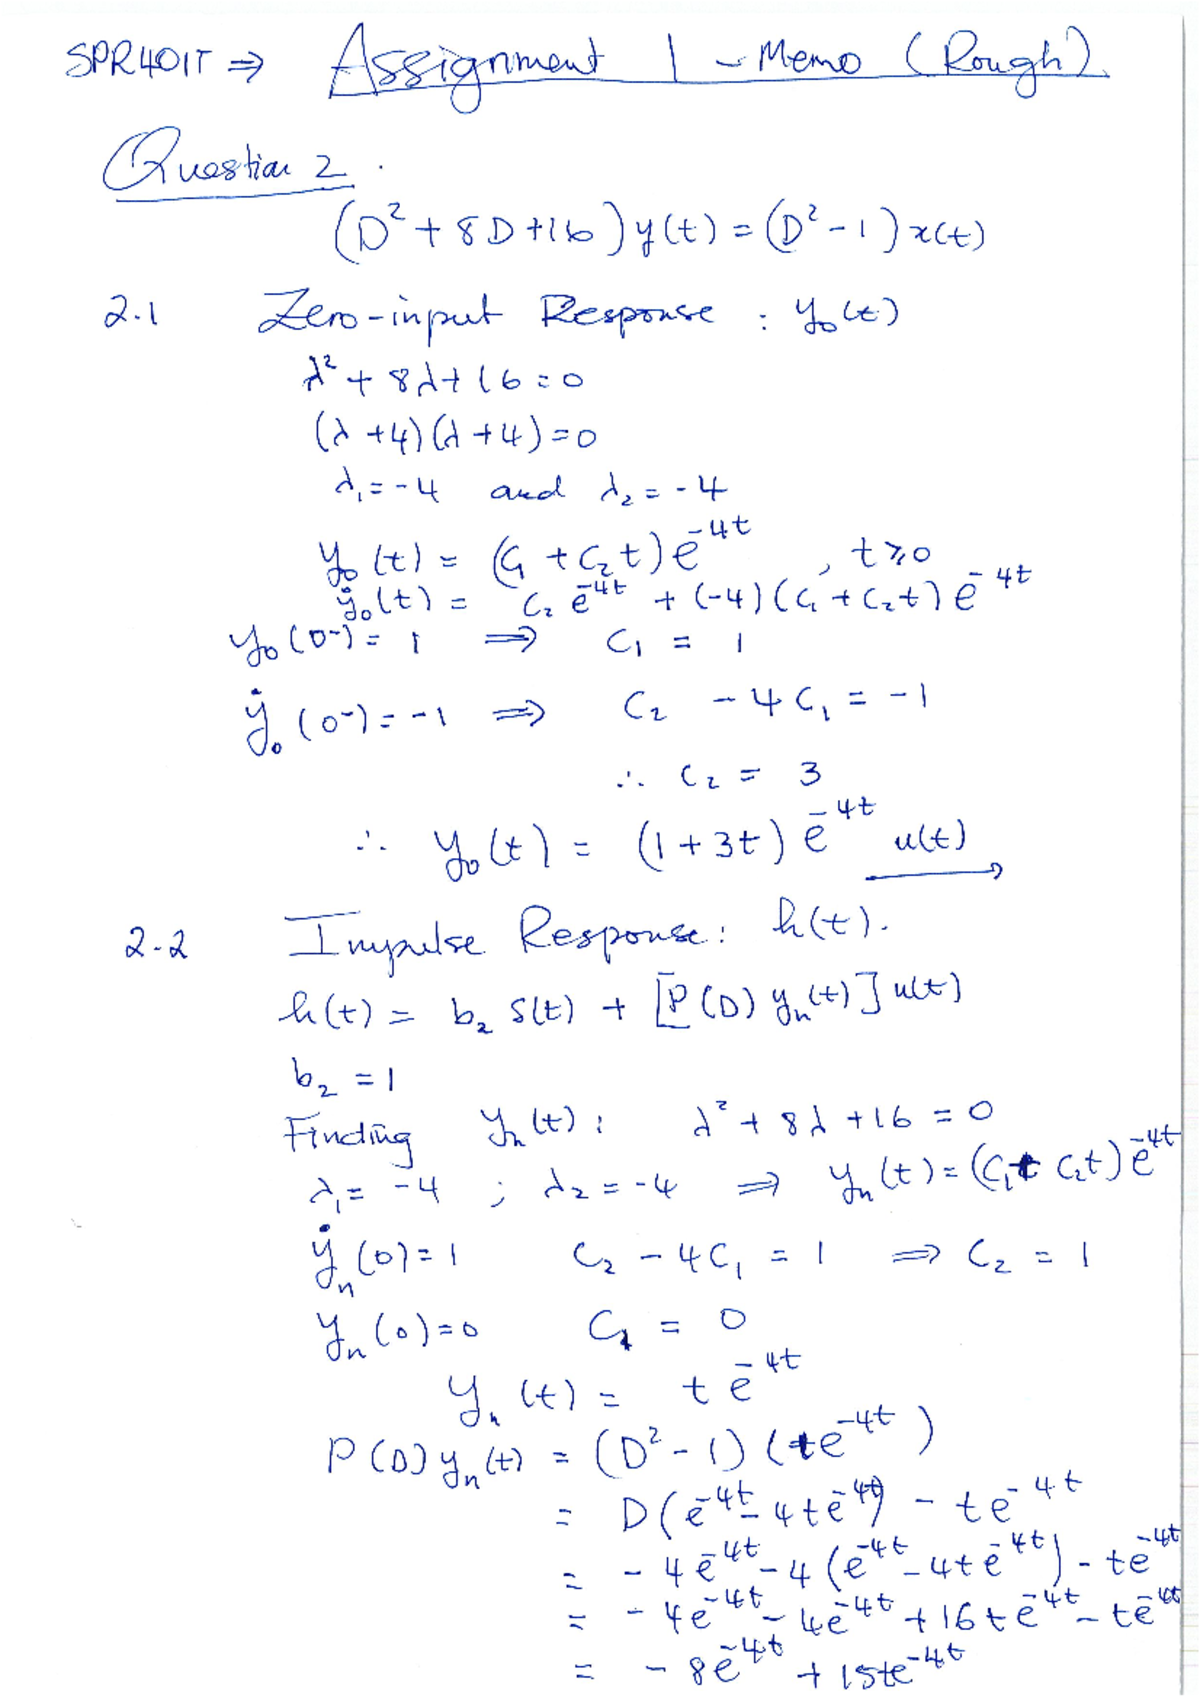 SPR401T ⇒ Assignment 1 - Memo (Rough).
Question 2.
(D² + 8D + 16) y(t) = (D² - 1) x(t)
2.1 Zero-input Response : y₀(t)
λ² + 8λ + 16 = 0
(λ + 4)(λ + 4) = 0
λ₁ = -4 and λ₂ = -4
y₀(t) = (C₁ + C₂t) e^-4t , t ≥ 0
ẏ₀(t) = C₂ e^-4t + (-4)(C₁ + C₂t) e^-4t
y₀(0⁻) = 1 ⇒ C₁ = 1
ẏ₀(0⁻) = -1 ⇒ C₂ - 4C₁ = -1
∴ C₂ = 3
∴ y₀(t) = (1 + 3t) e^-4t u(t)
2.2 Impulse Response : h(t).
h(t) = b₂ δ(t) + [P(D) yₙ(t)] u(t)
b₂ = 1
Finding yₙ(t) : λ² + 8λ + 16 = 0
λ₁ = -4 ; λ₂ = -4 ⇒ yₙ(t) = (C₁ + C₂t) e^-4t
ẏₙ(0) = 1 C₂ - 4C₁ = 1 ⇒ C₂ = 1
yₙ(0) = 0 C₁ = 0
yₙ(t) = t e^-4t
P(D) yₙ(t) = (D² - 1) (te^-4t)
= D(e^-4t - 4te^-4t) - te^-4t
= -4e^-4t - 4(e^-4t - 4te^-4t) - te^-4t
= -4e^-4t - 4e^-4t + 16te^-4t - te^-4t
= -8e^-4t + 15te^-4t